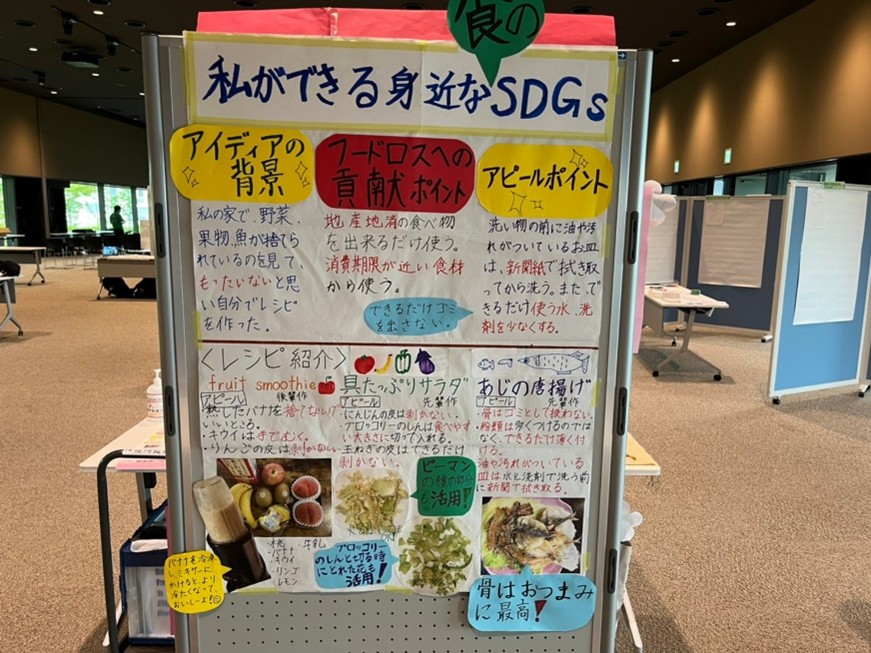 食の
私ができる身近なSDGs
アイディアの
背景
私の家で、野菜、
果物、魚が捨てら
れているのを見て、
もったいないと思
い自分でレシピ
を作った。
フードロスへの
貢献ポイント
地産地消の食べ物
を出来るだけ使う。
消費期限が近い食材
から使う。
できるだけゴミ
を出さない。
アピールポイント
洗い物の前に油や汚
れがついているお皿
は、新聞紙で拭き取
ってから洗う。また、で
きるだけ使う水、洗
剤を少なくする。
<レシピ紹介>
fruit smoothie
後輩作
アピール
熟したバナナを捨てないで
いいところ。
・キウイは手でむく。
・りんごの皮は剥かない
・桃 ・牛乳
・バナナ
・キウイ
・リンゴ
レモン
バナナを冷凍
し、ミキサーに
かけると、より
冷たくなって、
おいしーよ!
具たっぷりサラダ
先輩作
アピール
・にんじんの皮は剥かない。
・ブロッコリーのしんは食べやす
い大きさに切って入れる。
・玉ねぎの皮はできるだけ
剥かない。
ピーマン
の種の部分
も活用!
ブロッコリー
のしんと切る時
にとれた花も
活用!
あじの唐揚げ
先輩作
アピール
・骨はゴミとして扱わない。
・粉類は多くつけるのでは
なく、できるだけ薄く付
ける。
油や汚れがついている
皿は水と洗剤で洗う前
に新聞で拭き取る。
骨はおつまみ
に最高!